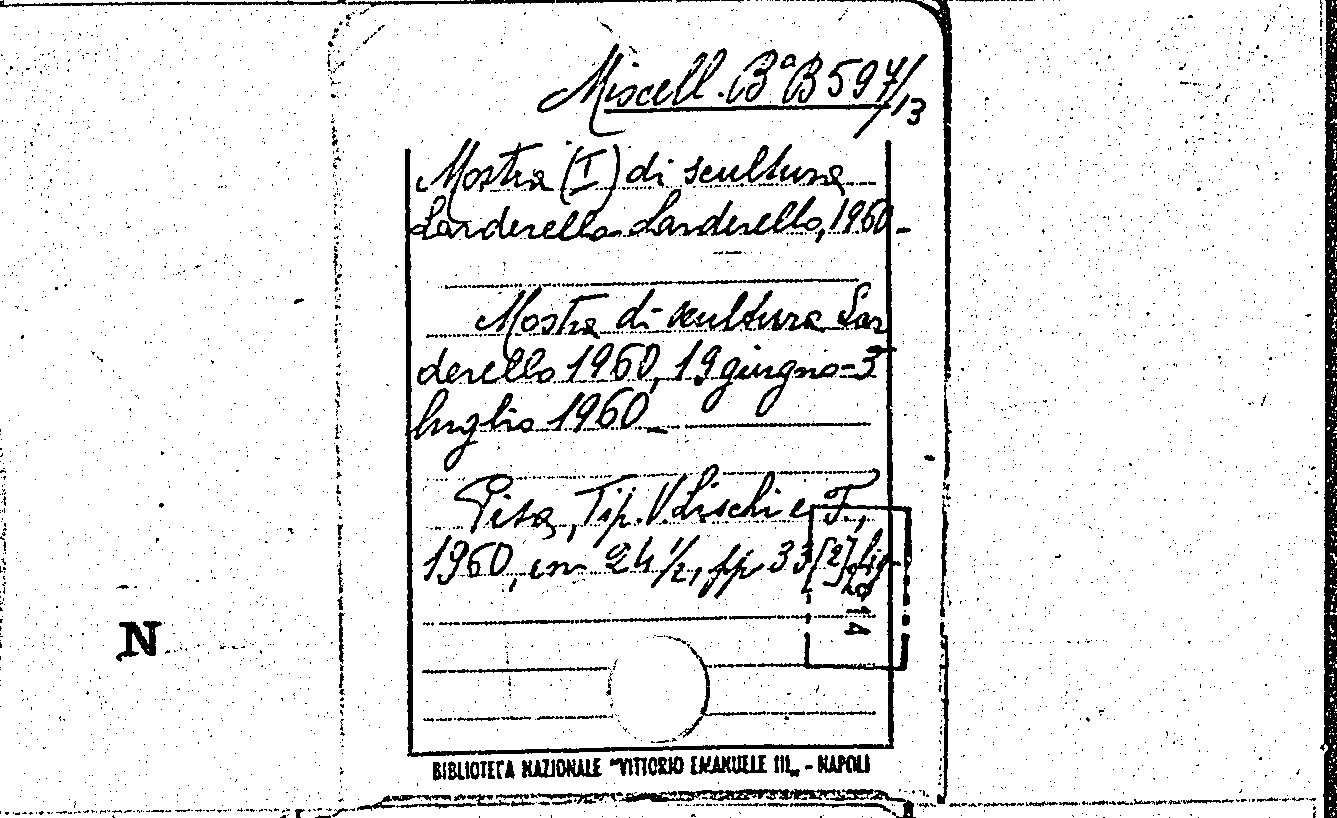 Miscell. Bª B 597/13
Mostra (I) di scultura
Larderello. Larderello, 1960.
Mostra di scultura Lar
derello 1960, 19 giugno-3
luglio 1960.
Pisa, Tip. V. Lischi e F.,
1960, cm 24 1/2, pp 33 [2] fig.
N
BIBLIOTECA NAZIONALE "VITTORIO EMANUELE III„ - NAPOLI